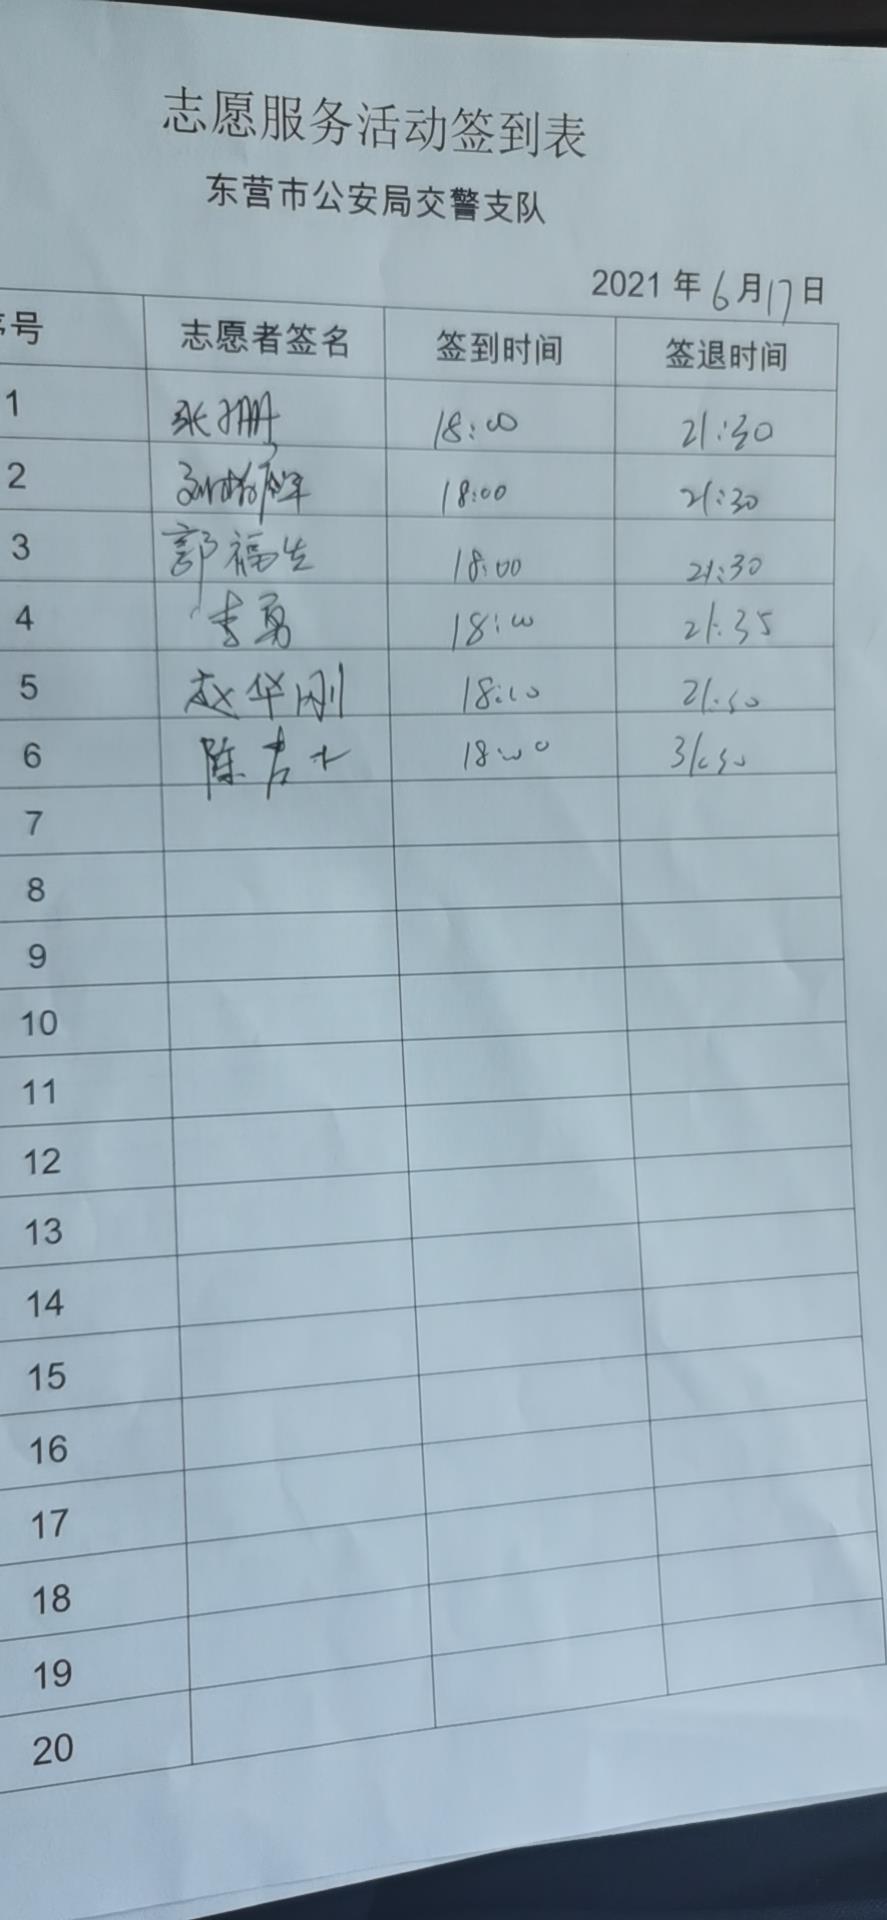 志愿服务活动签到表
东营市公安局交警支队
2021年6月17日
序号 志愿者签名 签到时间 签退时间
1 张珊 18:00 21:30
2 18:00 21:30
3 郭福生 18:00 21:30
4 李勇 18:00 21:35
5 赵华刚 18:00 21:30
6 陈 18:00 31:30
7
8
9
10
11
12
13
14
15
16
17
18
19
20